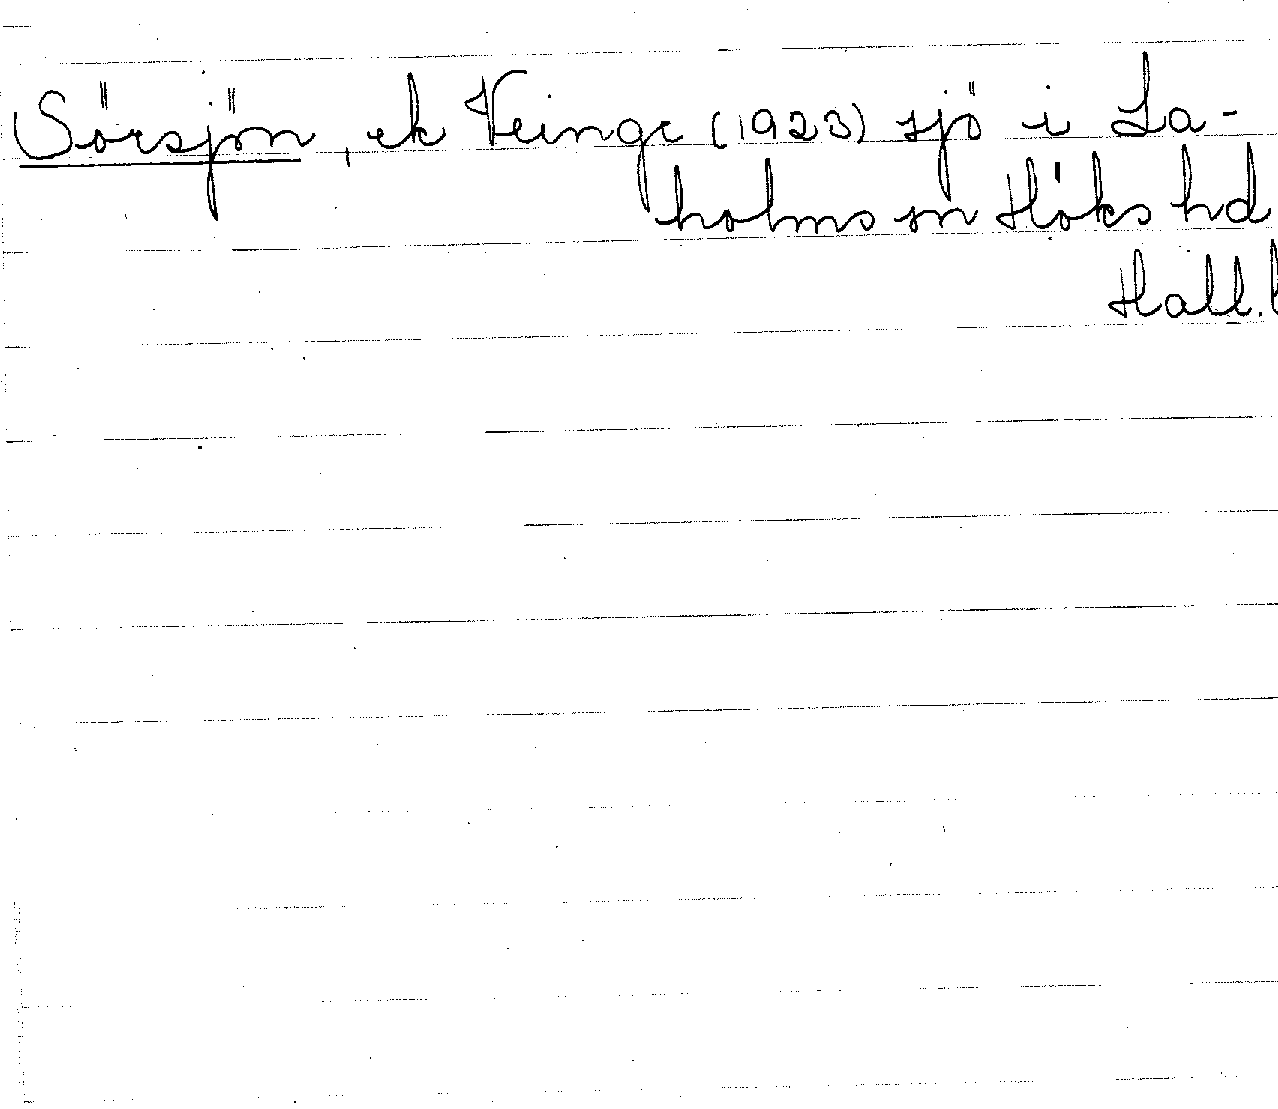 Sörsjön, ek Veinge (1923) sjö i La-
holms sn Höks hd
Hall. l